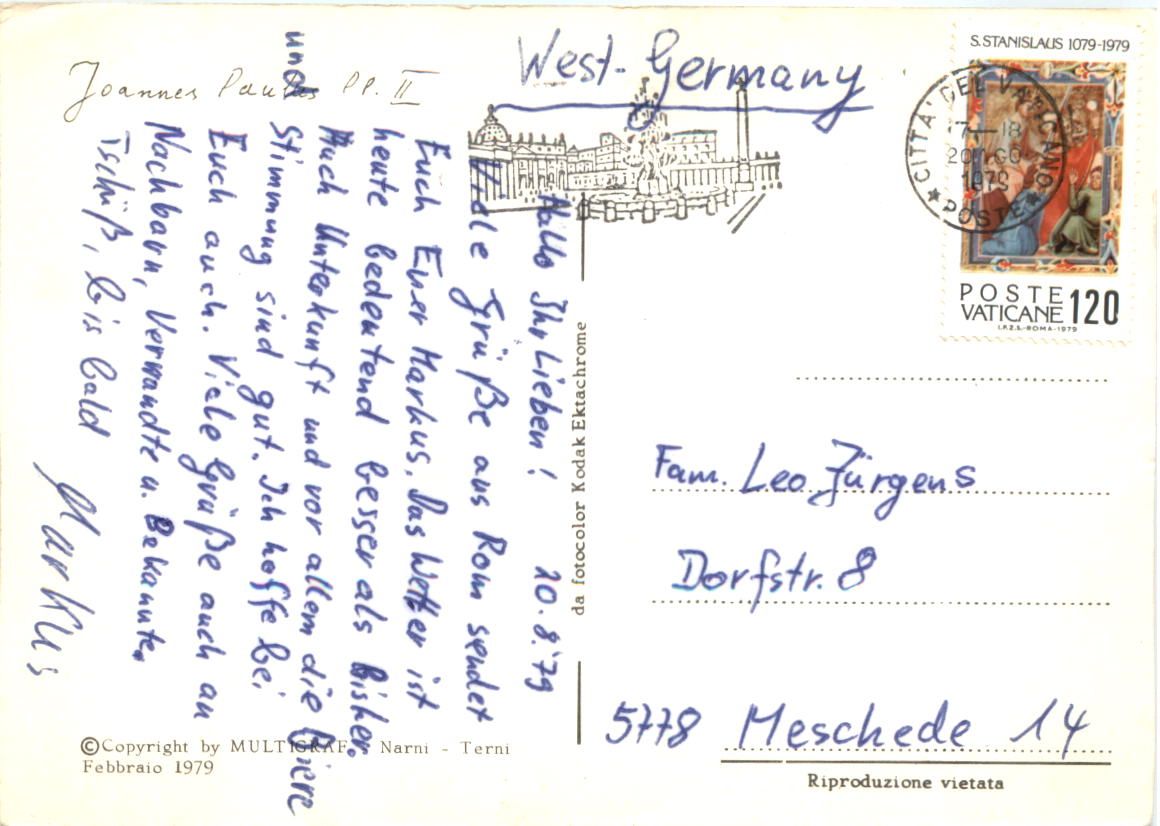 Joannes Paulus PP. II
West-Germany
S.STANISLAUS 1079-1979
CITTA' DEL VATICANO
17-18
1979
POSTE
POSTE
VATICANE 120
I.P.Z.S.-ROMA-1979
Hallo Ihr Lieben! 20.8.79
Viele Grüße aus Rom sendet
Euch Euer Markus. Das Wetter ist
heute bedeutend besser als bisher.
Auch Unterkunft und vor allem die Biere
und Stimmung sind gut. Ich hoffe bei
Euch auch. Viele Grüße auch an
Nachbarn, Verwandte u. Bekannte.
Tschüß, bis bald
Markus
da fotocolor Kodak Ektachrome
Fam. Leo Jürgens
Dorfstr. 8
5778 Meschede 14
©Copyright by MULTIGRAF - Narni - Terni
Febbraio 1979
Riproduzione vietata